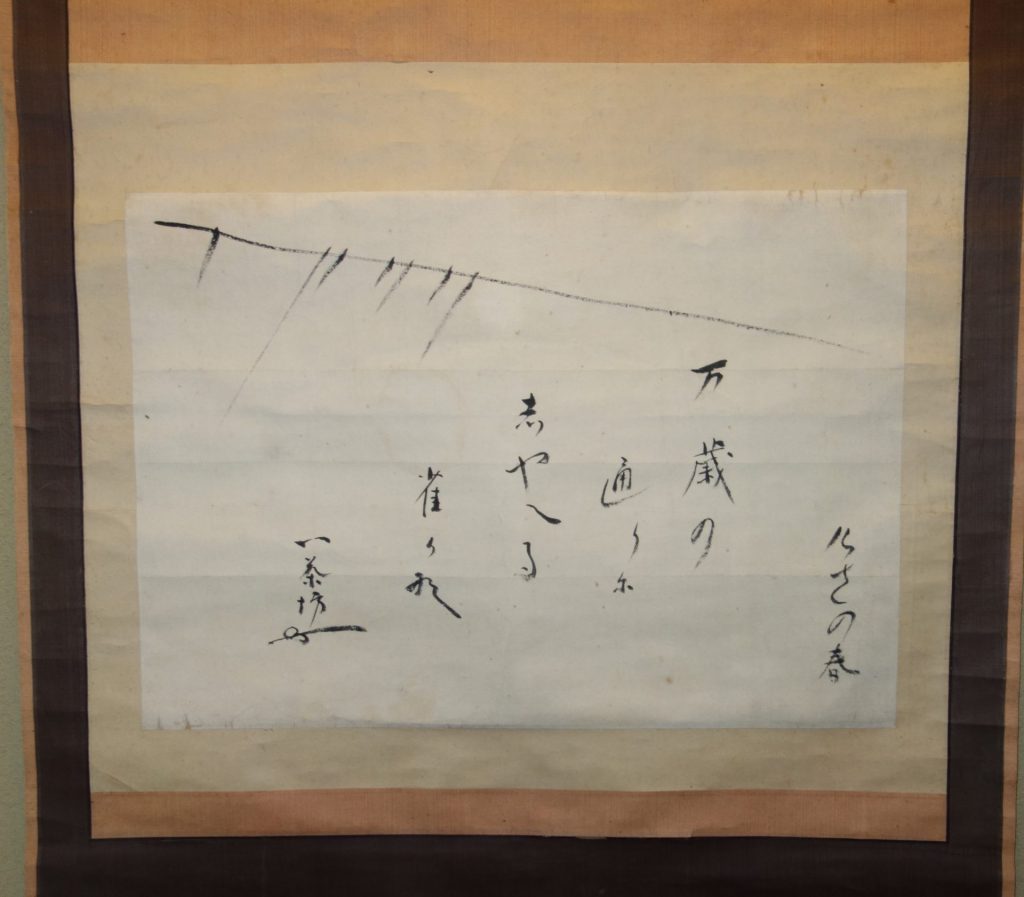 けさの春
万歳の
通りに
しやへる
雀かな
一茶坊